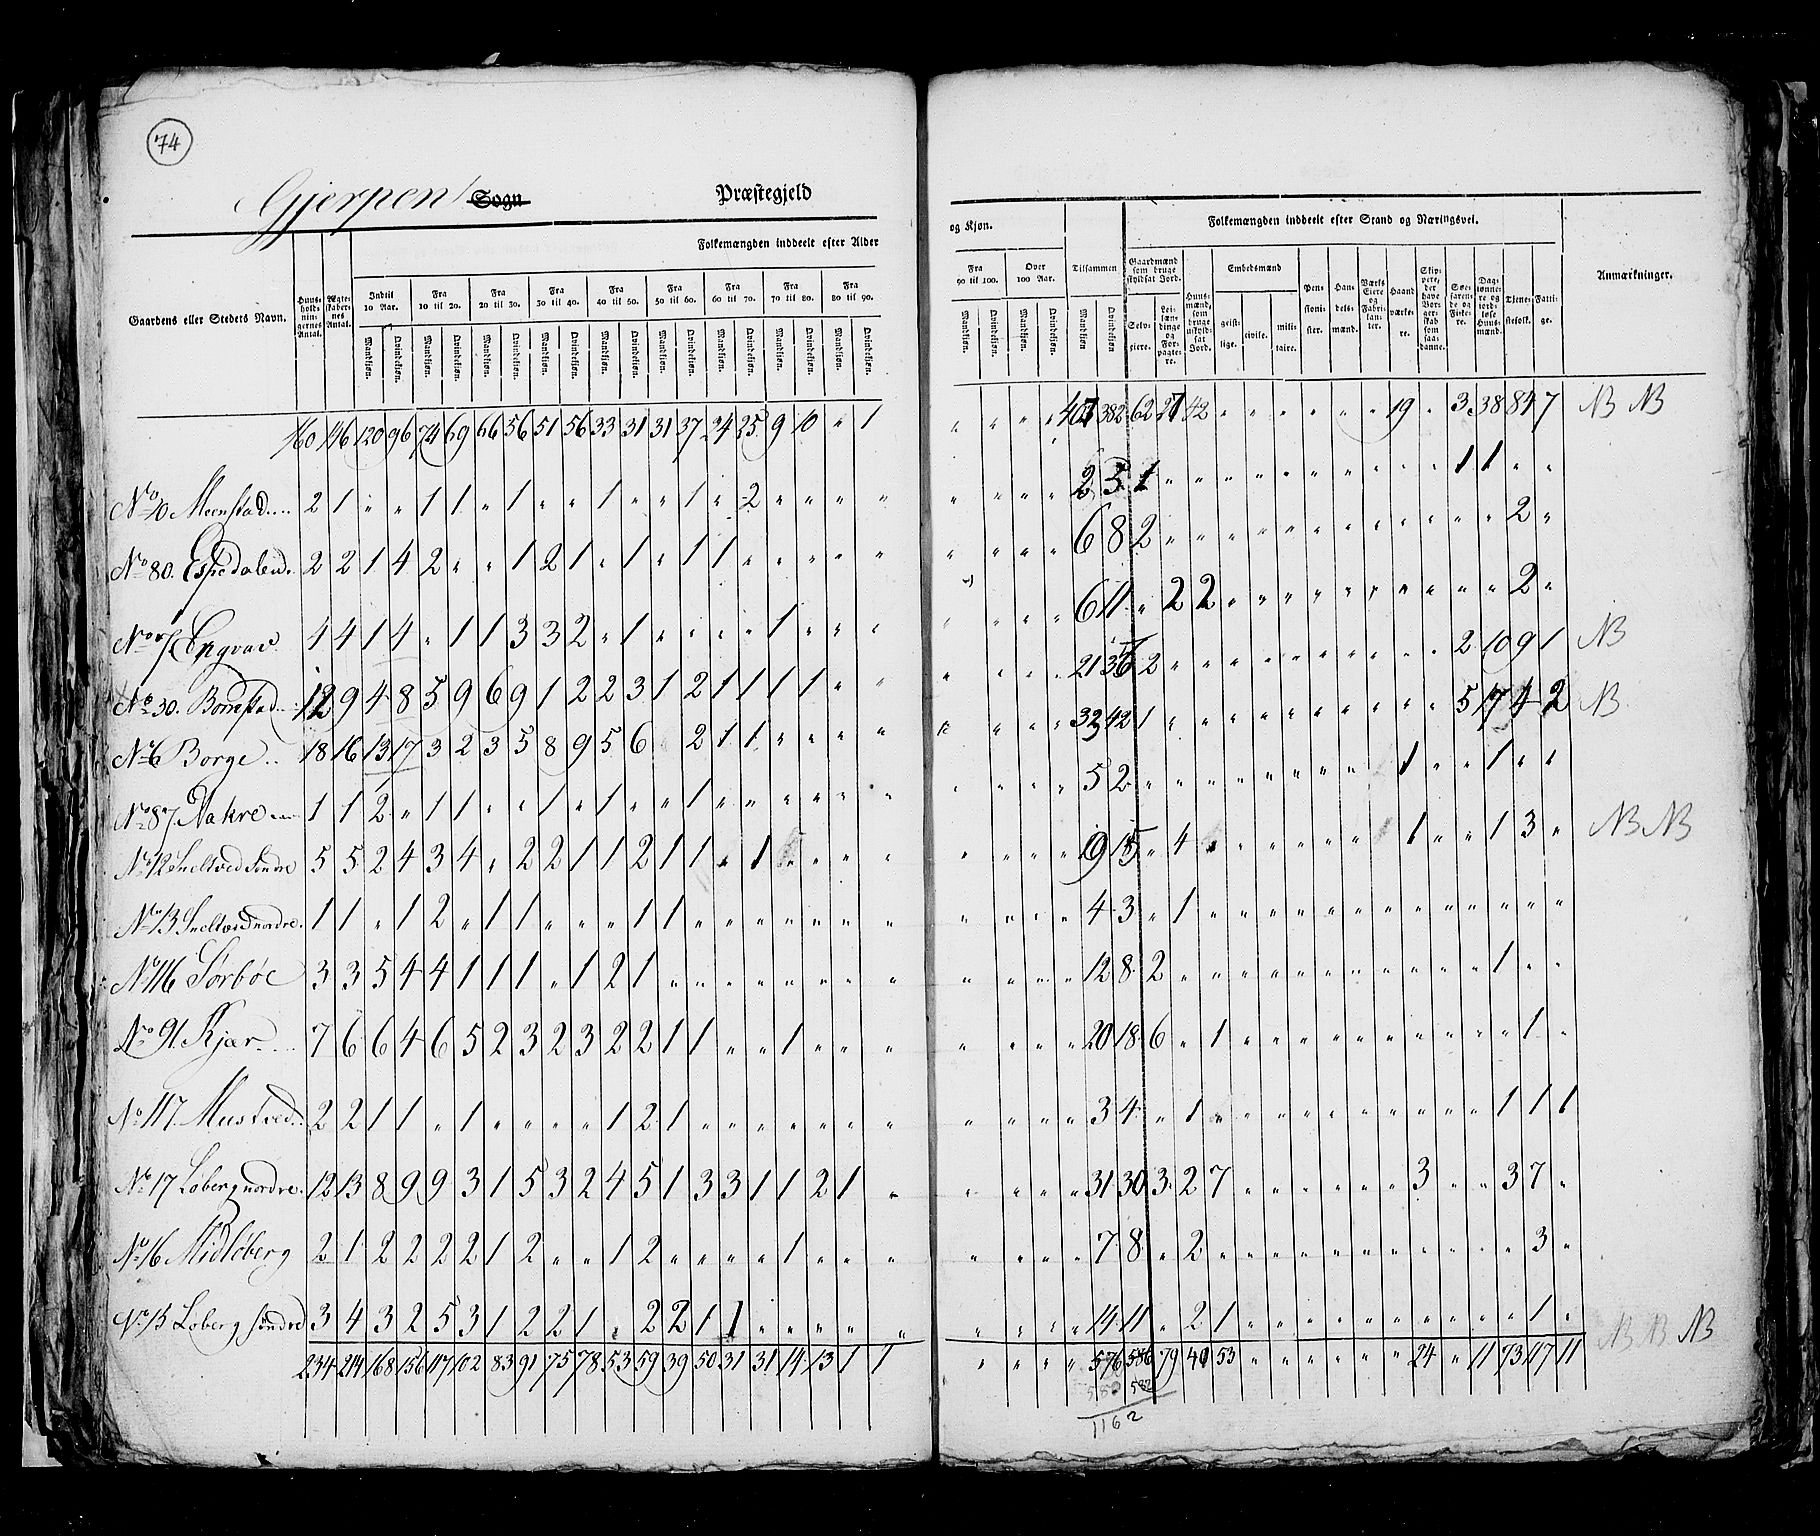 74
Gjerpen Sogn Præstegjeld
Folkemængden inddeelt efter Alder og Kjøn. Tilsammen Folkemængden inddeelt efter Stand og Næringsvei. Anmærkninger.
Gaardens eller Steders Navn. Huusholdningernes Antal. Ægteskabernes Antal. Indtil 10 Aar. Fra 10 til 20. Fra 20 til 30. Fra 30 til 40. Fra 40 til 50. Fra 50 til 60. Fra 60 til 70. Fra 70 til 80. Fra 80 til 90. Fra 90 til 100. Over 100 Aar.
Mandkiøn. Qvindekiøn. Mandkiøn. Qvindekiøn. Mandkiøn. Qvindekiøn. Mandkiøn. Qvindekiøn. Mandkiøn. Qvindekiøn. Mandkiøn. Qvindekiøn. Mandkiøn. Qvindekiøn. Mandkiøn. Qvindekiøn. Mandkiøn. Qvindekiøn. Mandkiøn. Qvindekiøn. Mandkiøn. Qvindekiøn. Mandkiøn Qvindekiøn
Gaardmænd som bruge skyldsat Jord. Selveiere. Leilændinge og Forpagtere. Huusmænd, som bruge uskyldsat Jord. Embedsmænd geistlige. civile. militaire. Pensionister. Handelsmænd. Værks Eiere og Fabrikanter. Haandværkere. Skippere, der have Borgerskab som saadanne. Søefarende og Fiskere. Daglønnere og jordløse Huusmænd. Tjenestefolk. Fattige.
160 146 120 96 74 69 66 56 51 56 33 31 31 37 24 25 9 10 " 1 " " " " 382 62 42 " " " " " " 19 " 3 38 84 7 NB NB
No 10 Meenstad.... 2 1 " " 1 1 " 1 " " 1 " " 1 " 2 " " " " " " " " 2 5 1 " " " " " " " " " " 1 1 " "
No 80. Espedalen. 2 2 1 4 2 " " 1 2 1 " 1 " 1 1 " " " " " " " " " 6 8 2 " " " " " " " " " " " " 2 "
No 7. 4 4 1 4 " 1 1 3 3 2 " 1 " " " " 1 " " " " " " " 6 11 " 2 2 " " " " " " " " " " 2 "
No 30. 12 9 4 8 5 9 6 9 1 2 2 3 1 2 1 1 1 1 " " " " " " 21 2 " " " " " " " " " " 2 10 9 1 NB
No 6 Borge.. 18 16 13 17 3 2 3 5 8 9 5 6 " 2 1 1 " " " " " " " 32 42 1 " " " " " " " " " " 5 17 4 2 NB
No 87. Aakre.... 1 1 2 " 1 1 " " 1 " 1 " " 1 " " " " " " " " " " 5 2 " " " " " " " " " 1 " " 1 " "
No 12 Sneltved Søndre 5 5 2 4 3 4 " 2 2 1 1 2 1 1 " 1 " " " " " " " " " 4 " " " " " " " 1 " " 1 3 " NB NB
No 13 Sneltved nordre. 1 1 " 1 2 " 1 1 " " " 1 1 " " " " " " " " " " " 4 3 " 1 " " " " " " " " " " " " "
No 116 Sørbøe 3 3 5 4 4 1 1 1 " 1 2 1 " " " " " " " " " " " " 12 8 2 " " " " " " " " " " " 1 " "
No 91. Kjær.... 7 6 6 4 6 5 2 3 2 3 2 2 1 1 " " 1 " " " " " " " 20 18 6 " 1 " " " " " " " " " " 1 "
No 117. Mustved.. 2 2 1 1 " 1 " " " " 1 2 1 " " " " " " " " " " " 3 4 " 1 " " " " " " " " " " 1 1 1
No 17 Loberg nordre. 12 13 8 9 9 3 1 5 3 2 4 5 1 3 3 1 1 2 1 " " " " " 31 30 3 2 7 " " " " " " 3 " " 3 7 "
No 16 Midlöberg 2 1 2 2 2 2 1 2 " " 1 2 " " " " 1 " " " " " " " 7 8 " 2 " " " " " " " " " " " 3 "
No 15 Loberg søndre 3 4 3 2 5 3 1 2 2 1 " 2 2 1 1 " " " " " " " " " 14 11 " 2 1 " " " " " " " " " " 1 " NB NB NB
234 214 168 156 117 102 83 91 75 78 53 59 39 50 31 31 14 13 1 1 " " " " 576 586 79 40 53 " " " " " " 24 " 11 73 117 11
580 582
1162